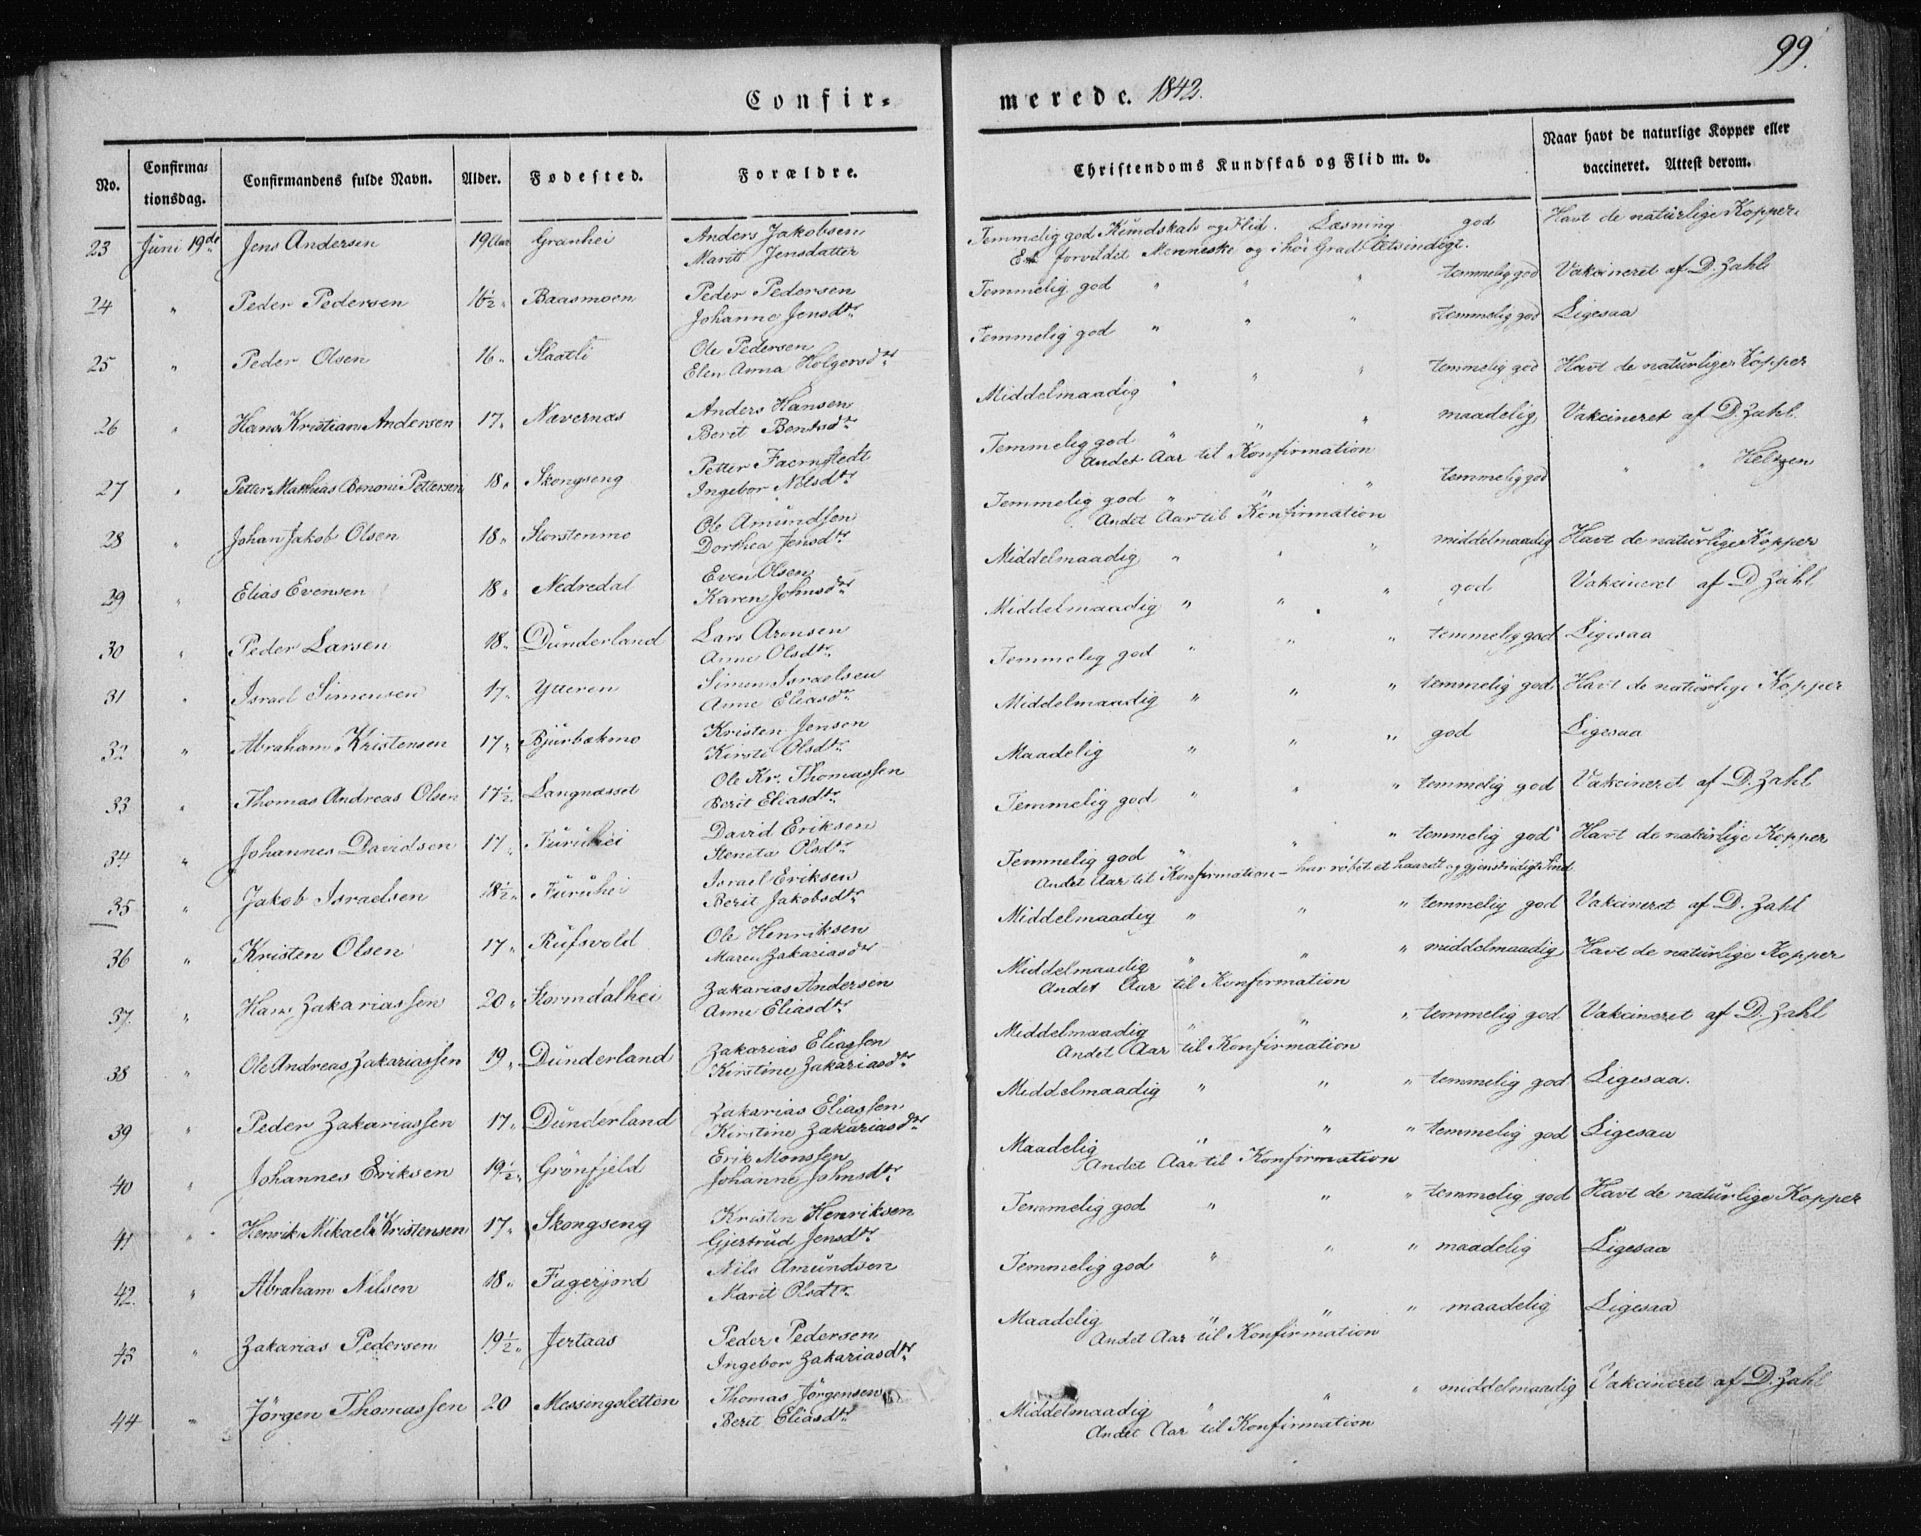 99.
Confir-
merede. 1842.
No.
Confirma-
tionsdag.
Confirmandens fulde Navn.
Alder.
Fødested.
Forældre.
Christendoms Kundskab og Flid m. v.
Naar havt de naturlige Kopper eller
vaccineret. Attest derom.
23 Juni 19de Jens Andersen 19 Aar Granhei Anders Jakobsen Temmelig god Kundskab og Flid. Læsning god Havt de naturlige Kopper
Marit Jensdatter Et forvildet Menneske og i høi Grad letsindigt.
24 " Peder Pedersen 16½ " Baasmoen Peder Pedersen Temmelig god " " " temmelig god Vakcineret af D. Zahl
Johanne Jensdtr
25 " Peder Olsen 16 " Slaatli Ole Pedersen Temmelig god " " " temmelig god Ligesaa
Elen Anna Holgersdtr
26 " Hans Kristian Andersen 17 " Nævernæs Anders Hansen Middelmaadig " " " temmelig god Havt de naturlige Kopper
Berit Bentsdtr
27 " Petter Mathias Benoni Pettersen 18 " Skongseng Petter Færnstedt Temmelig god " " " maadelig Vakcineret af D. Zahl.
Ingebor Nilsdtr Andet Aar til Konfirmation
28 " Johan Jakob Olsen 18 " Storstenmo Ole Amundsen Temmelig god " " " temmelig god " " Heltzen
Dorthea Jensdtr Andet Aar til Konfirmation
29 " Elias Evensen 18 " Nedredal Even Olsen Middelmaadig " " " middelmaadig Havt de naturlige Kopper
Karen Johnsdtr
30 " Peder Larsen 18 " Dunderland Lars Arensen Middelmaadig " " " god Vakcineret af D. Zahl
Anne Olsdtr
31 " Israel Simensen 17 " Ytteren Simen Israelsen Temmelig god " " " temmelig god Ligesaa
Anne Eliasdtr
32 " Abraham Kristensen 17 " Bjurbækmo Kristen Jensen Middelmaadig " " " temmelig god Havt de naturlige Kopper
Kirsti Olsdtr
33 " Thomas Andreas Olsen 17½ " Langnæsset Ole Kr. Thomassen Maadelig " " " god Ligesaa
Berit Eliasdtr
34 " Johannes Davidsen 17 " Furuhei David Eriksen Temmelig god " " " temmelig god Vakcineret af D. Zahl
Steneta Olsdtr
35 " Jakob Israelsen 18½ " Furuhei Israel Eriksen Temmelig god " " " temmelig god Havt de naturlige Kopper
Berit Jakobsdtr Andet Aar til Konfirmation - har røbet et haardt og gjenstridigt Sind
36 " Kristen Olsen 17 " Rufsvold Ole Henriksen Middelmaadig " " " temmelig god Vakcineret af D. Zahl
Maren Zakariasdtr
37. " Hans Zakariassen 20 " Stormdalhei Zakarias Andersen Middelmaadig " " " middelmaadig Havt de naturlige Kopper
Anne Eliasdtr Andet Aar til Konfirmation
38 " Ole Andreas Zakariassen 19 " Dunderland Zakarias Eliassen Middelmaadig " " " temmelig god Vakcineret af D. Zahl
Kirstine Zakariasdtr Andet Aar til Konfirmation
39 " Peder Zakariassen 17 " Dunderland Zakarias Eliassen Middelmaadig " " " temmelig god Ligesaa.
Kirstine Zakariasdtr
40 " Johannes Eriksen 19½ " Grönfjeld Erik Monssen Maadelig " " " temmelig god Ligesaa
Johanne Johnsdtr Andet Aar til Konfirmation
41 " Henrik Mikael Kristensen 17 " Skongseng Kristen Henriksen Temmelig god " " " temmelig god Havt de naturlige Kopper
Gjertrud Jensdtr
42. " Abraham Nilsen 18 " Fagerjord Nils Amundsen Temmelig god " " " maadelig Ligesaa
Marit Olsdtr
43 " Zakarias Pedersen 19½ " Jertaas Peder Pedersen Maadelig " " " maadelig Ligesaa
Ingebor Zakariasdtr Andet Aar til Konfirmation
44 " Jörgen Thomassen 20 Messingsletten Thomas Jörgensen Middelmaadig " " " middelmaadig Vakcineret af D. Zahl
Berit Eliasdtr Andet Aar til Konfirmation